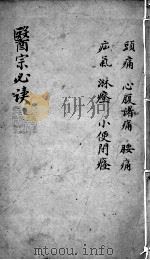 頭痛 心腹諸痛 腰痛
疝氣 淋症 小便閉癃
醫宗必读
mtoou.info